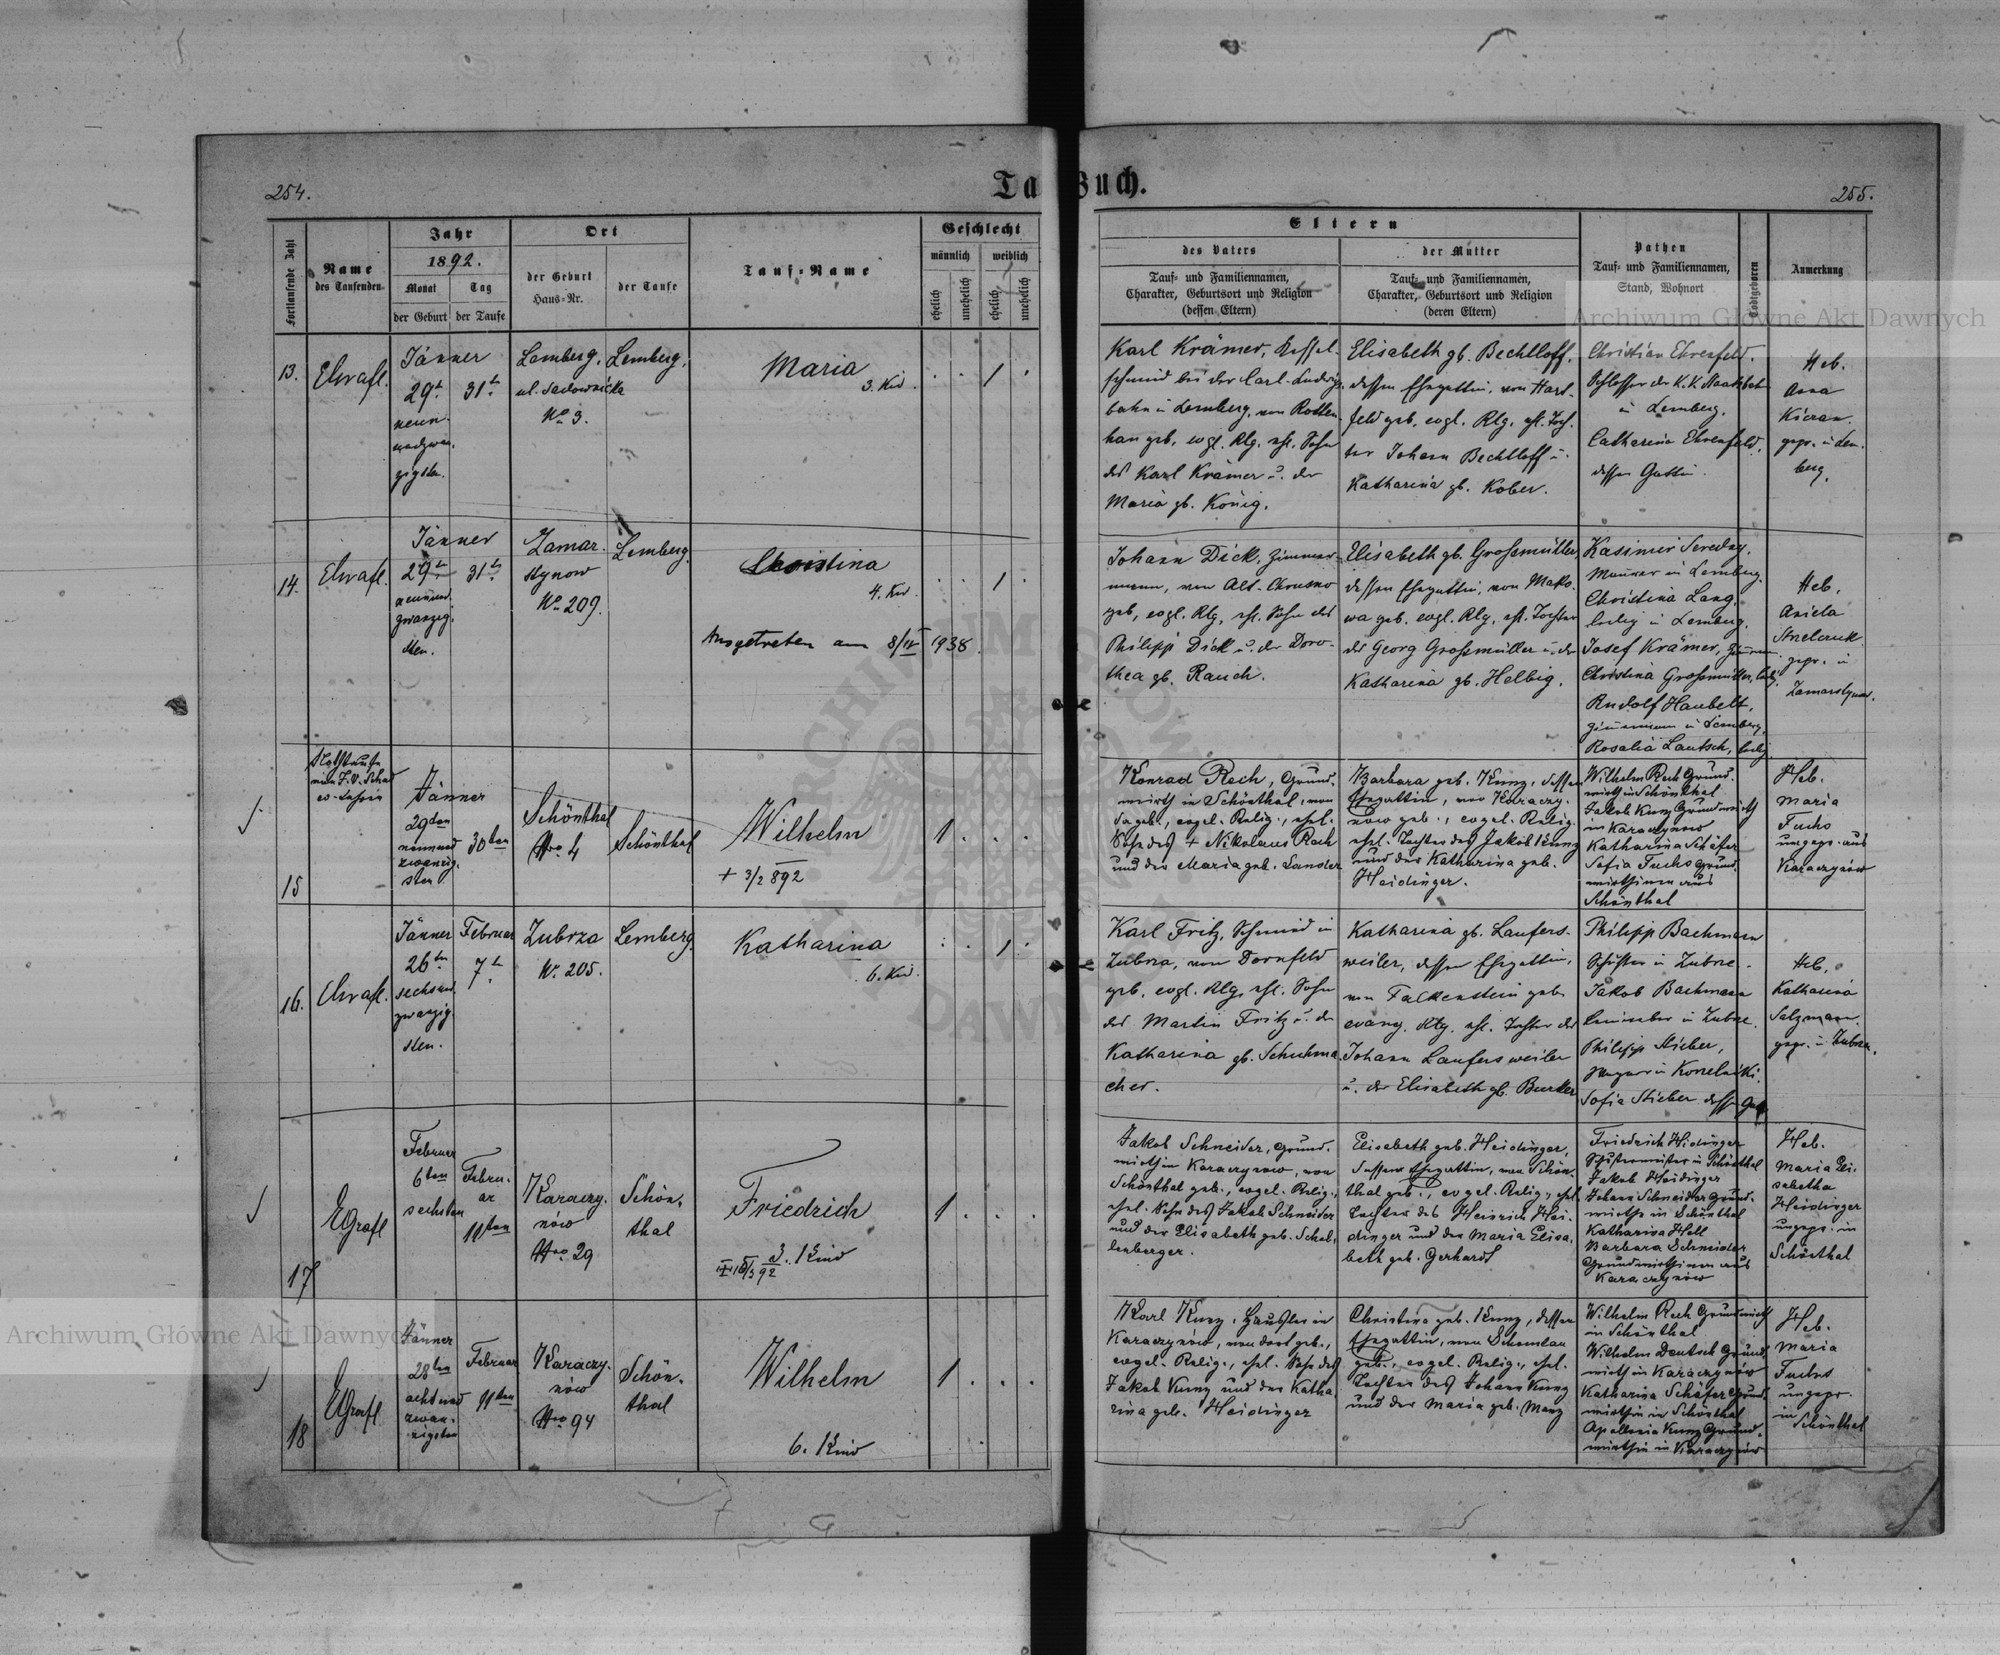 254.
Tauf-Buch.
255.
Fortlaufende Zahl
Name
des Taufenden
Jahr
1892.
Monat
Tag
der Geburt
der Taufe
Ort
der Geburt
Haus-Nr.
der Taufe
Tauf-Name
Geschlecht
männlich
weiblich
ehelich
unehelich
ehelich
unehelich
Eltern
des Vaters
Tauf- und Familiennamen,
Charakter, Geburtsort und Religion
(dessen Eltern)
der Mutter
Tauf- und Familiennamen,
Charakter, Geburtsort und Religion
(deren Eltern)
Pathen
Tauf- und Familiennamen,
Stand, Wohnort
Todtgeboren
Anmerkung
Archiwum Główne Akt Dawnych
13.
Jänner
29t
31t
Lemberg,
No 3.
Lemberg.
Maria
3. Kind.
1
Karl Krämer, Kessel-
schmied bei der Carl-Ludwigs
bahn in Lemberg, von Rotten
han geb, evgl. Rlg, ehl. Sohn
des Karl Krämer u. der
Maria gb. König.
Elisabeth gb. Bechtloff,
dessen Ehegattin, von Hart-
feld geb, evgl. Rlg, ehl. Toch-
ter Johann Bechtloff u.
Katharina gb. Kober.
Christian Ehrenfeld.
Schlosser der K. K. Staatsbah
in Lemberg.
Catharina Ehrenfeld,
dessen Gattin.
Heb.
Anna
gepr. in Lem-
berg.
14.
Jänner
29t
31t
neunund-
zwanzig-
sten.
Zamar-
stynow
No 209.
Lemberg.
Christina
4. Kind.
Ausgetreten am 8/IV 1938.
1
Johann Dick, Zimmer-
mann, von Alt-Chrusno
geb, evgl. Rlg, ehl. Sohn des
Philipp Dick u. der Doro-
thea gb. Rauch.
Elisabeth gb. Grossmüller
dessen Ehegattin, von Mako-
wa geb. evgl. Rlg, ehl. Tochter
des Georg Grossmüller u. der
Katharina gb. Helbig.
Kasimir
Maurer in Lemberg.
Christina Lang,
ledig in Lemberg.
Josef Krämer,
Christina Grossmüller, ledig.
Rudolf Haubelt,
Zimmermann in Lemberg,
Rosalia Lautsch, ledig
Heb.
Aniela
gepr. in
Zamarstynow.
15
Jänner
29ten
neunund
zwanzig-
sten
30ten
Schönthal
Nro 4
Schönthal
Wilhelm
+ 3/2 892
1
Konrad Rech, Grund-
wirth in Schönthal, von
da geb., evgel. Relig., ehel.
Sohn des + Nikolaus Rech
und der Maria geb. Sander
Barbara geb. Kunz, dessen
Ehegattin, von Karaczy-
nów geb., evgel. Relig.
ehel. Tochter des Jakob Kunz
und der Katharina geb.
Heidinger.
Wilhelm Rech Grund-
wirth in Schönthal
Jakob Kunz Grundwirth
in Karaczynow
Katharina Schäfer
Sofia Fuchs Grund-
wirthinen aus
Schönthal
Heb.
Maria
Fuchs
ungepr. aus
Karaczynów
16.
Jänner
26ten
sechsund-
zwanzig-
sten.
Februar
7t
Zubrza
Nr. 205.
Lemberg.
Katharina
6. Kind.
1
Karl Fritz, Schmied in
Zubrza, von Dornfeld
geb. evgl. Rlg, ehl. Sohn
des Martin Fritz u. der
Katharina gb. Schuhma
cher.
Katharina gb. Laufers-
weiler, dessen Ehegattin,
von Falkenstein geb.
evang. Rlg. ehl. Tochter des
Johann Laufersweiler
u. der Elisabeth gb. Burker
Philipp Bachmann
Schuster in Zubrza.
Jakob Bachmann
in Zubrza.
Philipp Stieber,
Sofia Stieber dessen
Heb.
Katharina
Salzmann
gepr. in Zubrza.
17
EGrafl
Februar
6ten
sechsten
Febru-
ar
11ten
Karaczy-
nów
Nro 29
Schön-
thal
Friedrich
3. Kind
1
Jakob Schneider, Grund-
wirth in Karaczynow, von
Schönthal geb., evgel. Relig.,
ehel. Sohn des Jakob Schneider
und der Elisabeth geb. Schal-
lenberger.
Elisabeth geb. Heidinger,
dessen Ehegattin, von Schön-
thal geb., evgel. Relig., ehel.
Tochter des Heinrich Hei-
dinger und der Maria Elisa-
beth geb. Gerhardt
Friedrich Heidinger
Schustermeister in Schönthal
Jakob Heidinger
Johann Schneider Grund-
wirthe in Schönthal
Katharina Hell
Barbara Schneider
Grundwirthinen aus
Karaczynów
Heb.
Maria Eli-
sabetha
Heidinger
ungepr. in
Schönthal
18
EGrafl
Jänner
28ten
achtund
zwan-
zigsten
Februar
11ten
Karaczy-
nów
Nro 94
Schön-
thal
Wilhelm
6. Kind
1
Karl Kunz, Häusler in
Karaczynów, von dort geb.,
evgel. Relig., ehel. Sohn des
Jakob Kunz und der Katha-
rina geb. Heidinger
Christina geb. Kunz, dessen
Ehegattin, von Schumlau
geb., evgel. Relig., ehel.
Tochter des Johann Kunz
und der Maria geb. Manz
Wilhelm Rech Grundwirth
in Schönthal
Wilhelm Deutsch Grund-
wirth in Karaczynów
Katharina Schäfer Grund-
wirthin in Schönthal
Apollonia Kunz Grund-
wirthin in Karaczynów
Heb.
Maria
Fuchs
ungepr.
in Schönthal
Archiwum Główne Akt Dawnych